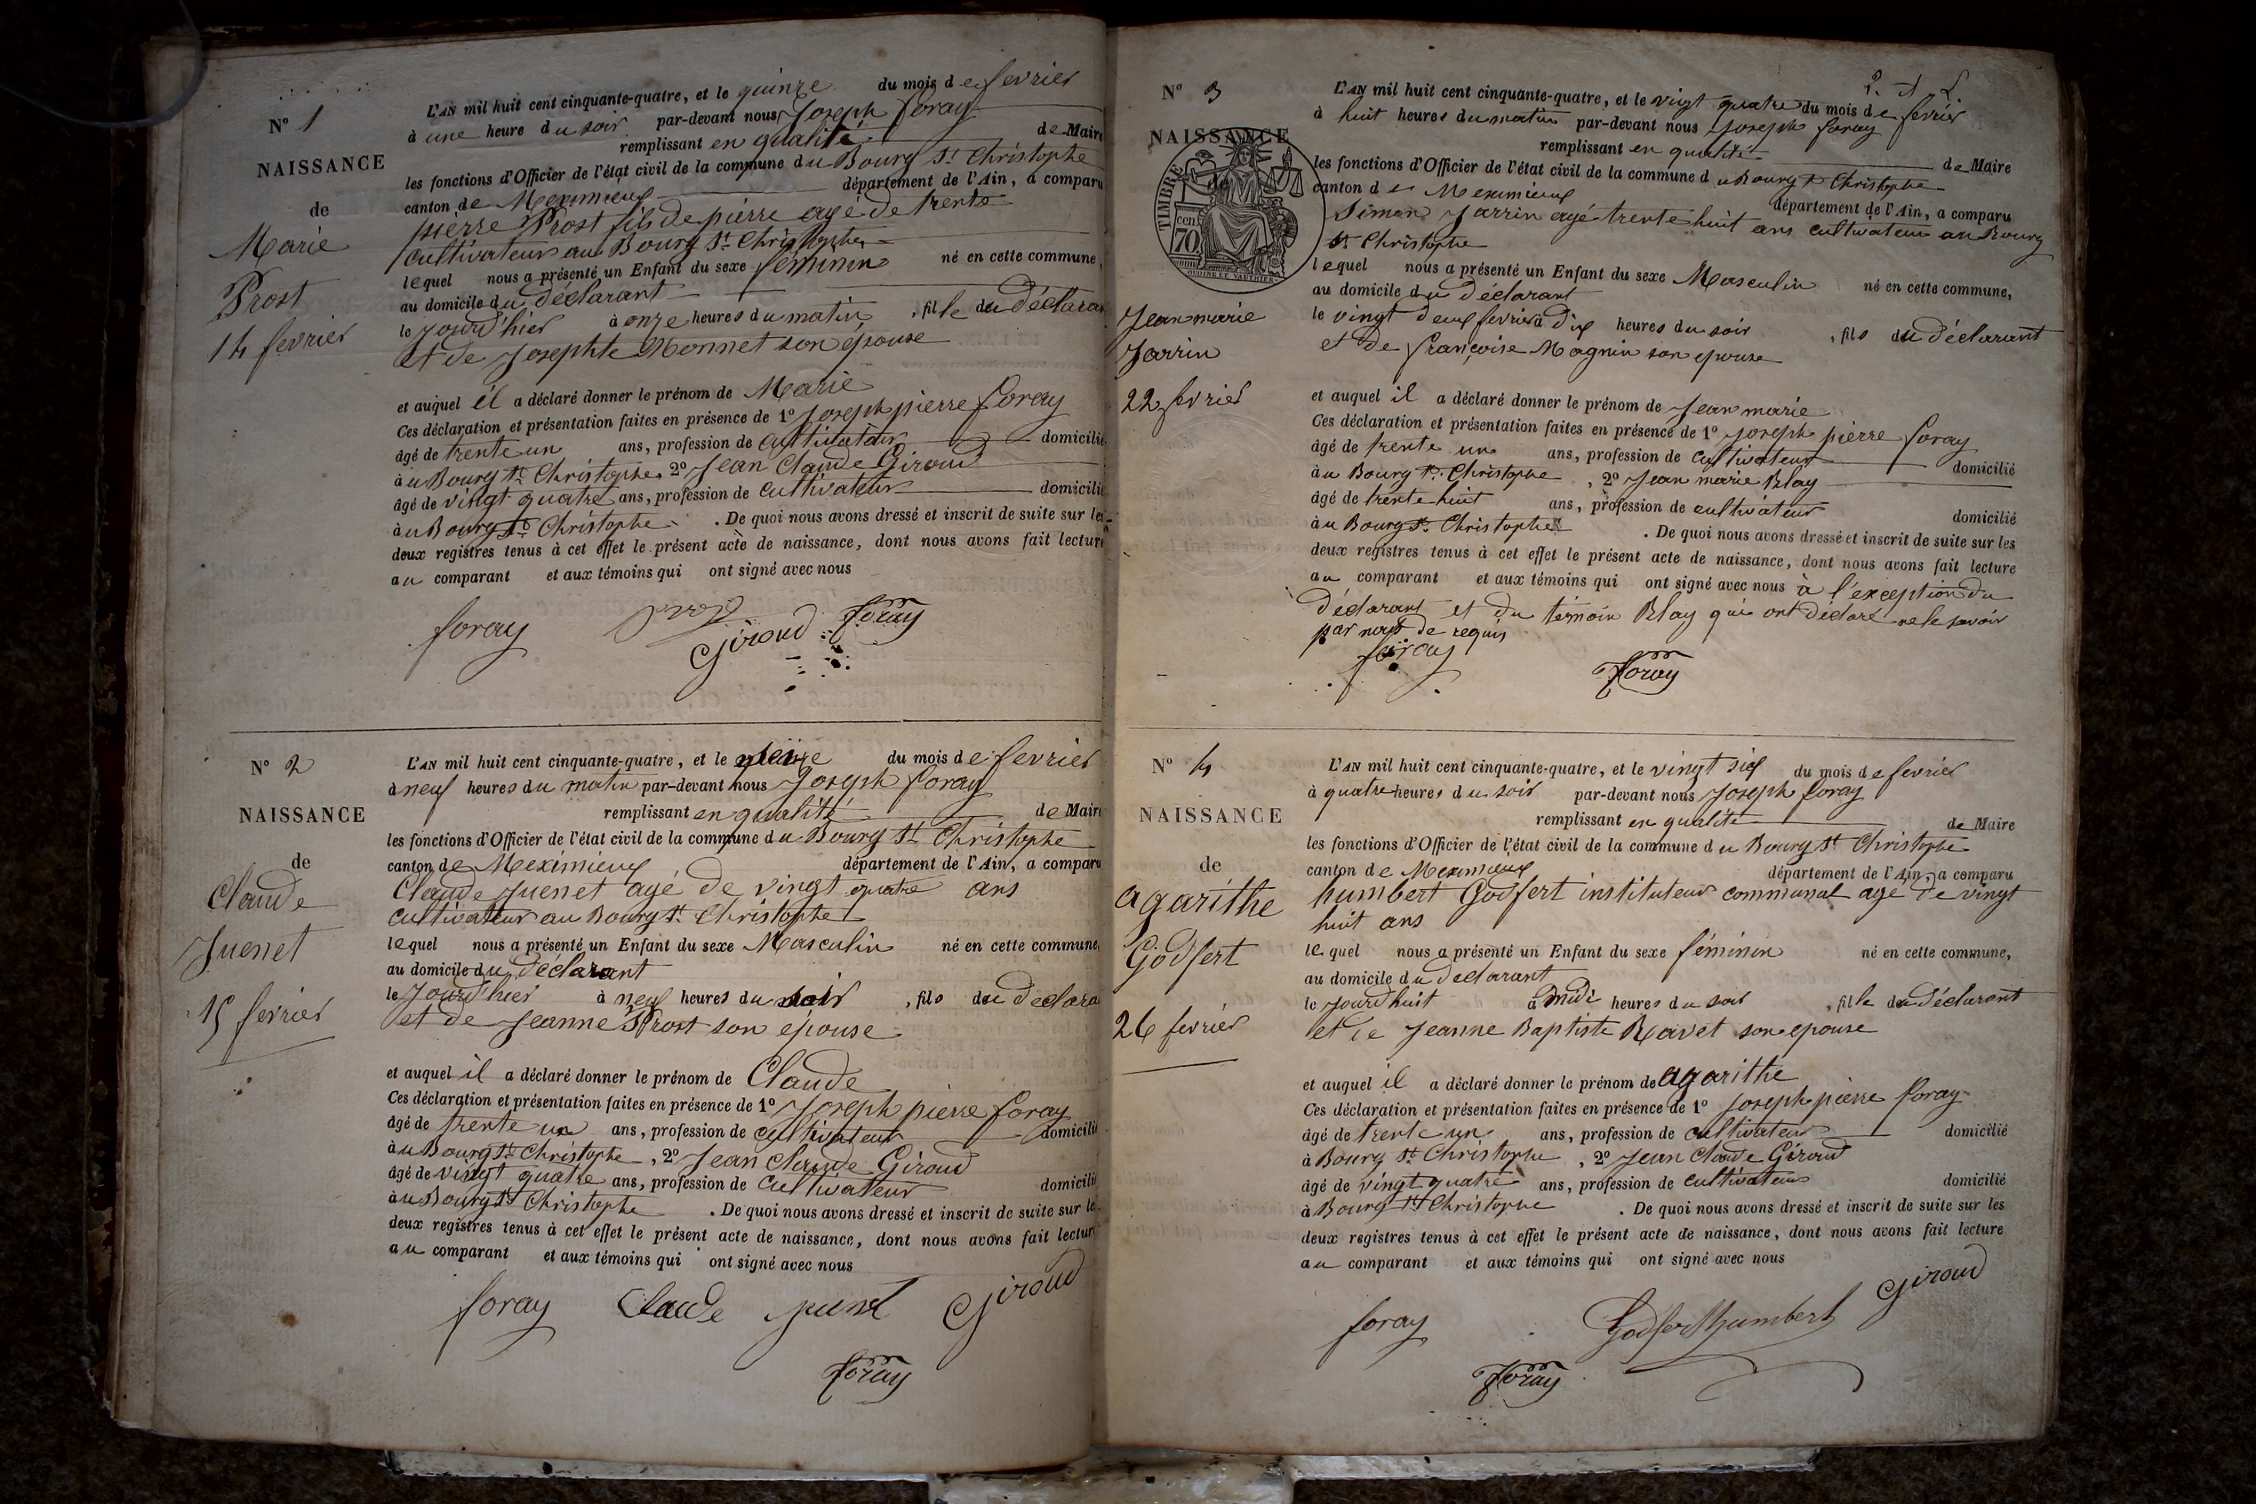 N° 1
NAISSANCE
de
Marie
Prost
14 fevrier
L'AN mil huit cent cinquante-quatre, et le quinze du mois de fevrier
à une heure du soir par-devant nous Joseph foray
remplissant en qualité de Maire
les fonctions d'Officier de l'état civil de la commune du Bourg St Christophe
canton de Meximieux département de l'Ain, a comparu
pierre Prost fils de pierre agé de trente
cultivateur au Bourg St Christophe
lequel nous a présenté un Enfant du sexe féminin né en cette commune,
au domicile du déclarant
le Jourd'hier à onze heures du matin, fille du déclarant
et de Josephte Monnet son épouse
et auquel il a déclaré donner le prénom de Marie
Ces déclaration et présentation faites en présence de 1° Joseph pierre foray
âgé de trente un ans, profession de cultivateur domicilié
à u Bourg St Christophe, 2° Jean Claude Giroud
âgé de vingt quatre ans, profession de cultivateur domicilié
à u Bourg St Christophe. De quoi nous avons dressé et inscrit de suite sur les
deux registres tenus à cet effet le présent acte de naissance, dont nous avons fait lecture
au comparant et aux témoins qui ont signé avec nous
foray prost Giroud foray
N° 2
NAISSANCE
de
Claude
Juenet
15 fevrier
L'AN mil huit cent cinquante-quatre, et le seize du mois de fevrier
à neuf heures du matin par-devant nous Joseph foray
remplissant en qualité de Maire
les fonctions d'Officier de l'état civil de la commune du Bourg St Christophe
canton de Meximieux département de l'Ain, a comparu
Claude Juenet agé de vingt quatre ans
cultivateur au Bourg St Christophe
lequel nous a présenté un Enfant du sexe Masculin né en cette commune,
au domicile du déclarant
le Jourd'hier à neuf heures du soir, fils du déclara
et de Jeanne Prost son épouse
et auquel il a déclaré donner le prénom de Claude
Ces déclaration et présentation faites en présence de 1° Joseph pierre foray
âgé de trente un ans, profession de cultivateur domicilié
à u Bourg St Christophe, 2° Jean claude Giroud
âgé de vingt quatre ans, profession de cultivateur domicilié
à u Bourg St Christophe. De quoi nous avons dressé et inscrit de suite sur les
deux registres tenus à cet effet le présent acte de naissance, dont nous avons fait lecture
au comparant et aux témoins qui ont signé avec nous
foray Claude juenet Giroud
foray
N° 3
NAISSANCE
TIMBRE
cen 70
Jean marie
Jarrin
22 fevrier
L'AN mil huit cent cinquante-quatre, et le vingt quatre du mois de fevrier
à huit heures du matin par-devant nous Joseph foray
remplissant en qualité de Maire
les fonctions d'Officier de l'état civil de la commune du Bourg St Christophe
canton de Meximieux département de l'Ain, a comparu
Simon Jarrin agé trente huit ans cultivateur au Bourg
St Christophe
lequel nous a présenté un Enfant du sexe Masculin né en cette commune,
au domicile du déclarant
le vingt deux fevrier à dix heures du soir, fils du déclarant
et de françoise Magnin son epouse
et auquel il a déclaré donner le prénom de Jean marie
Ces déclaration et présentation faites en présence de 1° Joseph pierre foray
âgé de trente un ans, profession de cultivateur domicilié
à u Bourg St Christophe, 2° Jean marie Blay
âgé de trente huit ans, profession de cultivateur domicilié
à u Bourg St Christophe. De quoi nous avons dressé et inscrit de suite sur les
deux registres tenus à cet effet le présent acte de naissance, dont nous avons fait lecture
au comparant et aux témoins qui ont signé avec nous à l'exception du
déclarant et du témoin Blay qui ont déclaré ne le savoir
par nous de requis
foray foray
N° 4
NAISSANCE
de
agarithe
Godfert
26 fevrier
L'AN mil huit cent cinquante-quatre, et le vingt six du mois de fevrier
à quatre heures du soir par-devant nous Joseph foray
remplissant en qualité de Maire
les fonctions d'Officier de l'état civil de la commune du Bourg St Christophe
canton de Meximieux département de l'Ain, a comparu
humbert Godfert instituteur communal agé de vingt
huit ans
lequel nous a présenté un Enfant du sexe féminin né en cette commune,
au domicile du declarant
le jourd'huit à midi heures du soir, fille du déclarant
et de Jeanne Baptiste Ravet son epouse
et auquel il a déclaré donner le prénom de agarithe
Ces déclaration et présentation faites en présence de 1° Joseph pierre foray
âgé de trente un ans, profession de cultivateur domicilié
à Bourg St Christophe, 2° Jean Claude Giroud
âgé de vingt quatre ans, profession de cultivateur domicilié
à Bourg St Christophe. De quoi nous avons dressé et inscrit de suite sur les
deux registres tenus à cet effet le présent acte de naissance, dont nous avons fait lecture
au comparant et aux témoins qui ont signé avec nous
foray Godfert humbert Giroud
foray